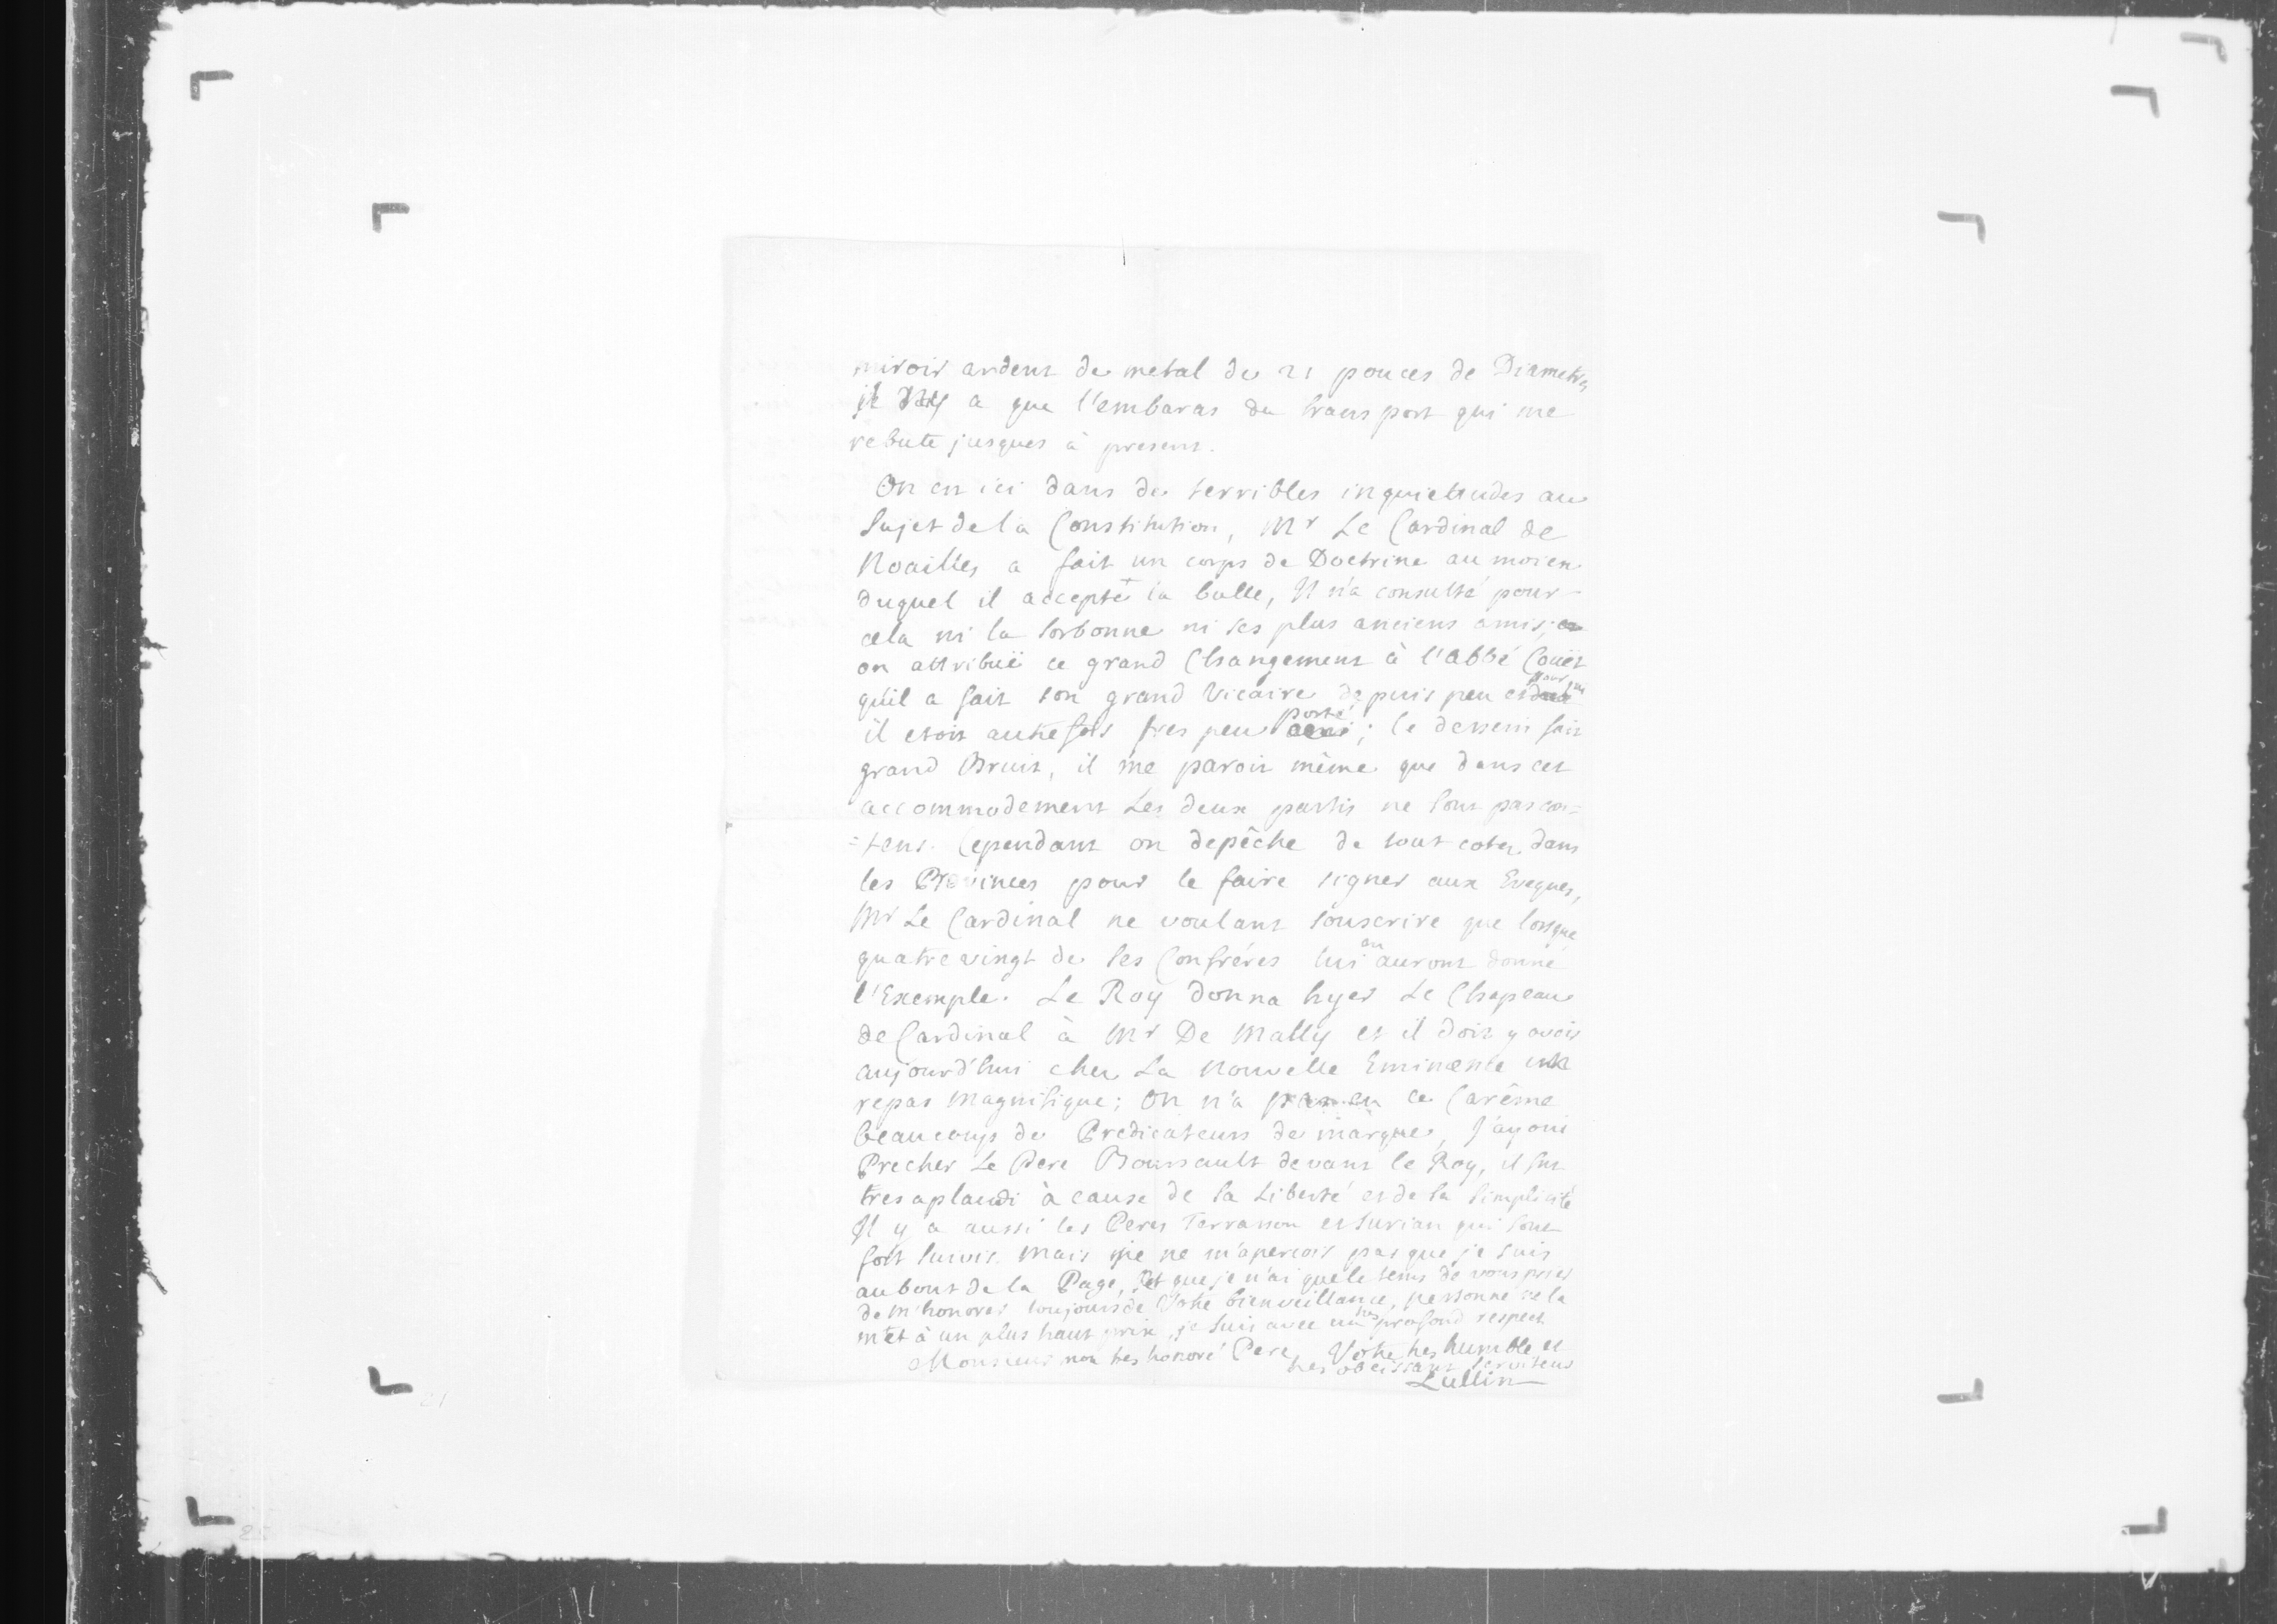 miroir ardent de metal de 21 pouces de Diametre,
il n'y a que l'embaras du transport qui me
rebute jusques à present.
On en ici dans de terribles inquietudes au
sujet de la Constitution, Mr Le Cardinal de
Noailles a fait un corps de Doctrine au moien
duquel il accepte la bulle, Il n'a consulté pour
cela ni la Sorbonne ni ses plus anciens amis;
on attribuë ce grand Changement à l'abbé Couët
qu'il a fait son grand Vicaire depuis peu et pour lui
il etoit autrefois tres peu porté; le dessein fait
grand Bruit, il me paroit même que dans cet
accommodement Les deux partis ne sont pas con=
=tens. Cependant on depêche de tout cotez dans
les Provinces pour le faire signer aux Eveques,
Mr Le Cardinal ne voulant souscrire que lorsque
quatre vingt de ses Confréres lui en auront donné
l'Exemple. Le Roy donna hyer Le Chapeau
de Cardinal à Mr De Mally et il doit y avoir
aujourd'hui chez La nouvelle Eminence un
repas magnifique; On n'a ce Carême
beaucoup de Predicateurs de marque, J'ay oui
Precher Le Pere Boursault devant le Roy, il fut
tres aplaudi à cause de sa Liberté et de sa simplicité
Il y a aussi les Peres Terrasson et Surian qui sont
fort suivis. mais je ne m'apercois pas que je suis
au bout de la Page, et que je n'ai que le tems de vous prier
de m'honorer toujours de Votre bienveillance, personne ne la
met à un plus haut prix, je suis avec un tres profond respect
Monsieur mon tres honoré Pere, Votre tres humble et
tres obeissant serviteur
Lullin
21